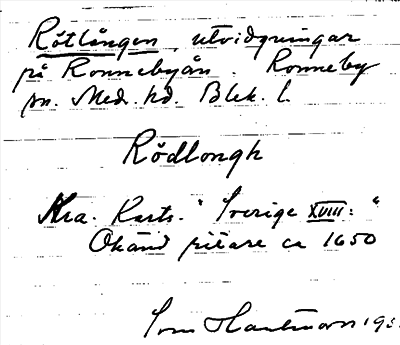 Rötlången, utvidgningar
på Ronnebyån. Ronneby
sn. Med. hd. Blek. l.
Rödlongh
Kra. Karts. "Sverige XVIII:"
Okänd ritare ca 1650